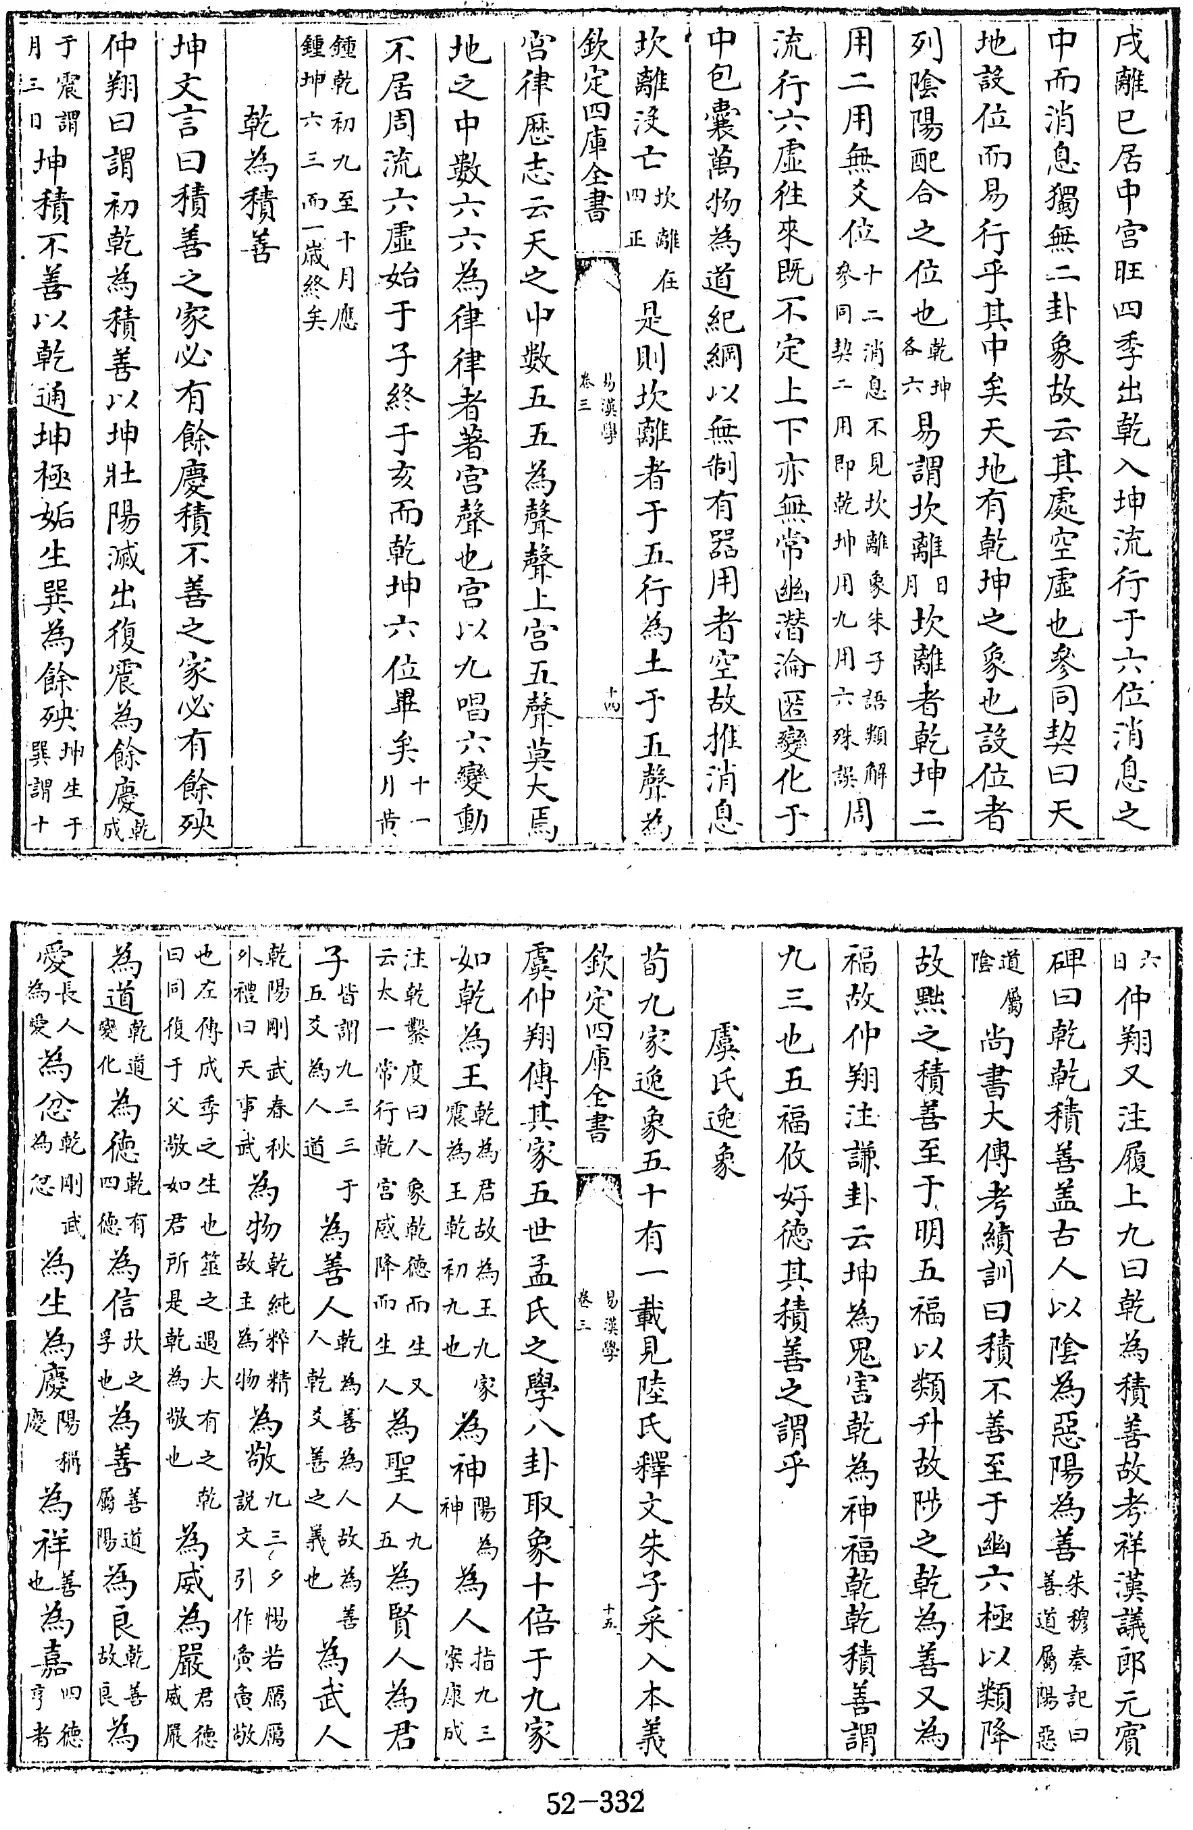 戌離已居中宮旺四季出乾入坤流行于六位消息之
中而消息獨無二卦象故云其處空虛也參同契曰天
地設位而易行乎其中矣天地有乾坤之象也設位者
列陰陽配合之位也乾坤各六易謂坎離日月坎離者乾坤二
用二用無爻位十二消息不見坎離象朱子語類解參同契二用即乾坤用九用六殊誤周
流行六虛往來既不定上下亦無常幽潛淪匿變化于
中包囊萬物為道紀綱以無制有器用者空故推消息
坎離沒亡坎離在四正是則坎離者于五行為土于五聲為
欽定四庫全書
易漢學
卷三
十四
宮律歷志云天之中數五五為聲聲上宮五聲莫大焉
地之中數六六為律律者著宮聲也宮以九唱六變動
不居周流六虛始于子終于亥而乾坤六位畢矣十一月黃
鍾乾初九至十月應鍾坤六三而一歲終矣
乾為積善
坤文言曰積善之家必有餘慶積不善之家必有餘殃
仲翔曰謂初乾為積善以坤牡陽滅出復震為餘慶乾成
于震謂月三日坤積不善以乾通坤極姤生巽為餘殃坤生于巽謂十
六日仲翔又注履上九曰乾為積善故考祥漢議郎元賓
碑曰乾乾積善盖古人以陰為惡陽為善朱穆奏記曰善道屬陽惡
道屬陰尚書大傳考績訓曰積不善至于幽六極以類降
故黜之積善至于明五福以類升故陟之乾為善又為
福故仲翔注謙卦云坤為鬼害乾為神福乾乾積善謂
九三也五福攸好德其積善之謂乎
虞氏逸象
荀九家逸象五十有一載見陸氏釋文朱子采入本義
欽定四庫全書
易漢學
卷三
十五
虞仲翔傳其家五世孟氏之學八卦取象十倍于九家
如乾為王乾為君故為王九家震為王乾初九也為神陽為神為人指九三案康成
注乾鑿度曰人象乾德而生又云太一常行乾宮感降而生人為聖人九五為賢人為君
子皆謂九三三于五爻為人道為善人乾為善為人故為善人乾爻善之義也為武人
乾陽剛武春秋外禮曰天事武為物乾純粹精故主為物為敬九三夕惕若厲厲說文引作夤夤敬
也左傳成季之生也筮之遇大有之乾曰同復于父敬如君所是乾為敬也為威為嚴君德威嚴
為道乾道變化為德乾有四德為信坎之孚也為善善道屬陽為良乾善故良為
愛長人為愛為忿乾剛武為忿為生為慶陽稱慶為祥善也為嘉四德亨者
52-332